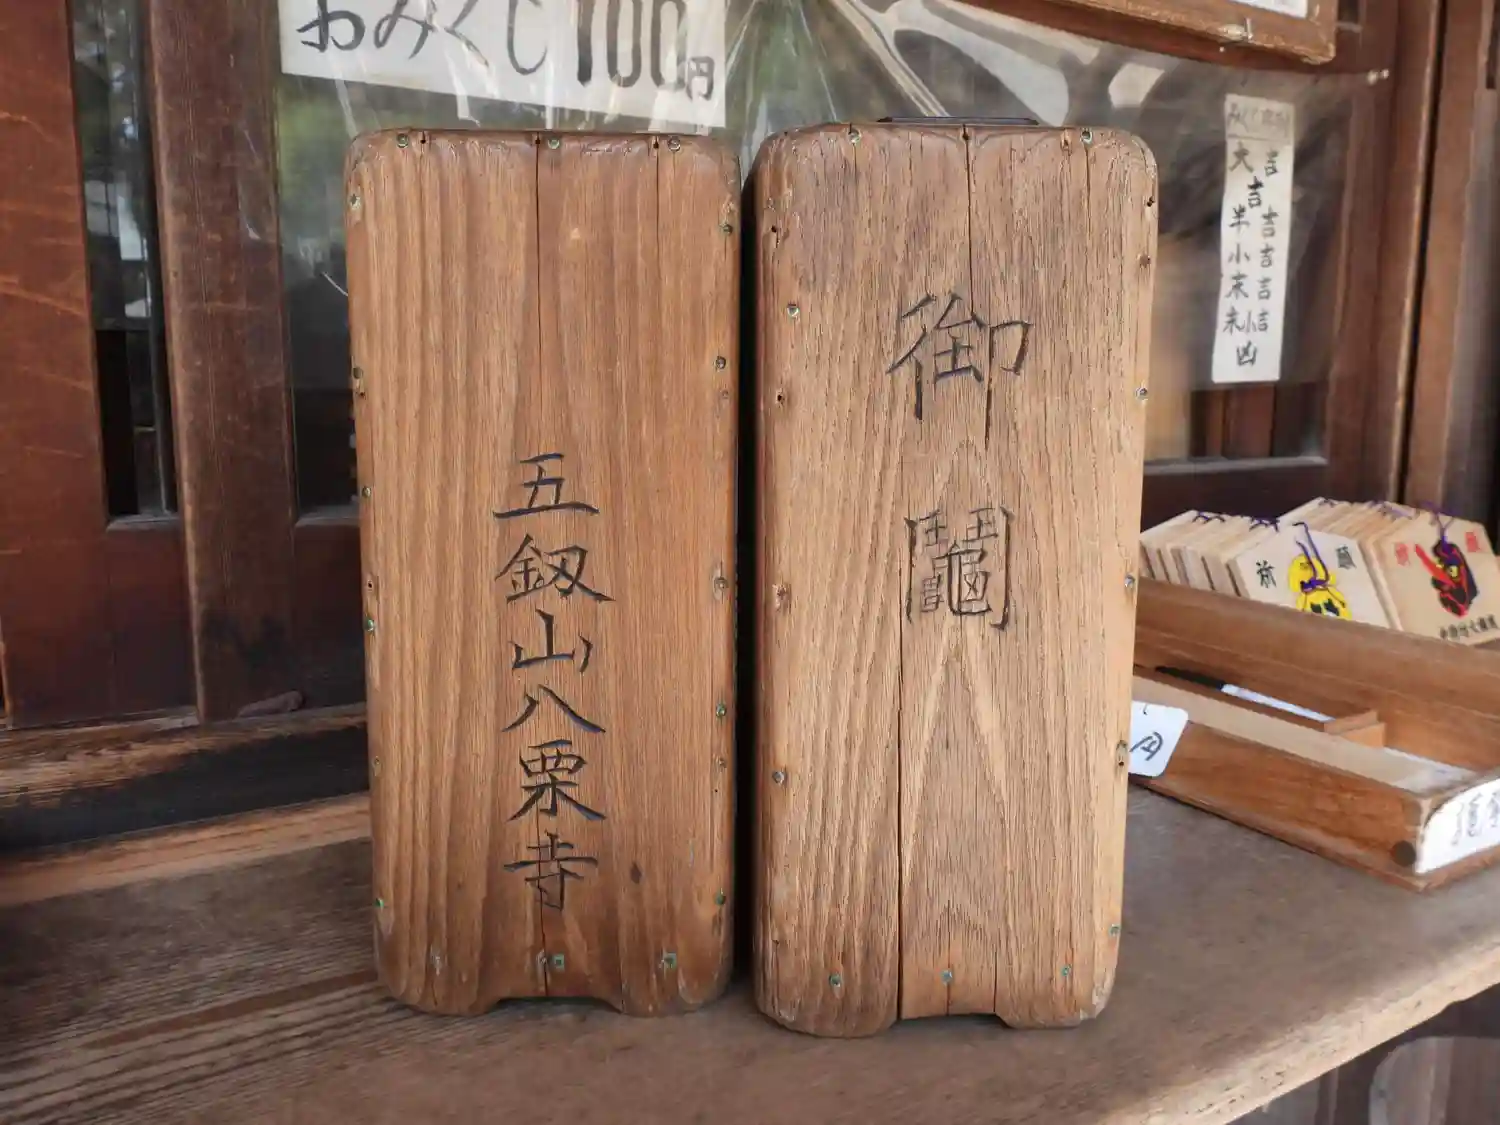 おみくじ100円
五釼山八栗寺
御鬮
大吉
吉
半吉
小吉
末吉
末小吉
凶
円